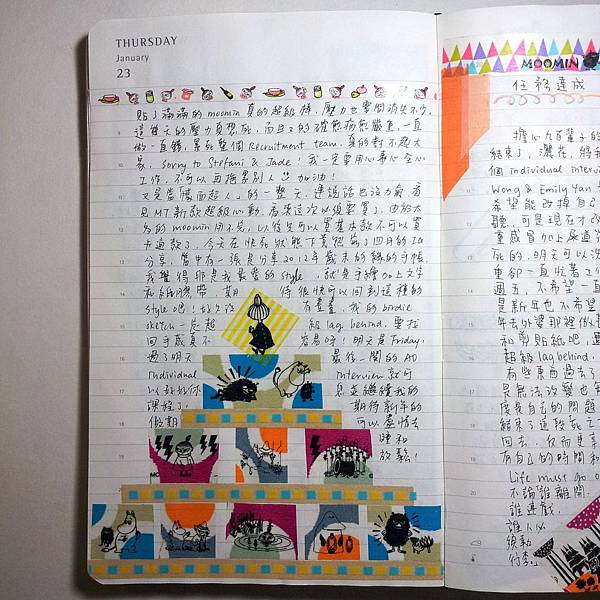 THURSDAY
January
23
貼了滿滿的moomin真的超級棒,壓力也瞬間消失不少,
這幾天的壓力真想死,而且又的確愈病愈嚴重,一直
做一直錯,累死整個Recruitment team,真的對不起大
家,Sorry to Stefani & Jade!我一定要用心專心全心
工作,不可以再拖累別人 加油!
又是當機而超人的一整天,連說話也沒力氣
MT新款超級心動,看來這次必須要買了,由於太
多的moomin用不完,以後生可以買基本款不可以買
卡通款了,今天在快死狀態下竟然寫了四月的IG
分享,當中有一張是分享2012年歲末的綠的手帳
我覺得那是我最愛的style,就是手繪加上文字
和紙膠帶,期待很快可以回到這種的
style吧!好久沒有畫畫,我的birdie
sketch一定超級lag behind,要找
回手感真不容易呀!明天是Friday,
過了明天最後一關的AD
Individual Interview就可
以好好休息並繼續我的
課程了,期待新年的
假期可以盡情去
睡和
放鬆!
MOOMIN
任務達成
擔心九百輩子的
結束了,灑花,將我
個individual interview
Wong & Emily Yan
希望能改掉自己
聽,可是現在才改
重感冒加上屎道
死的,明天可以沒
車卻一直忙著工
週五,不希望一直
是新年也不希望
年去外婆那裡做
和剪貼紙吧,還
超級lag behind,
有些東西過去了
是無法改變也
度我自己的問題
結束了這段死工
回去,反而更享
有自己的時間和
Life must go on
不論誰離開
誰進駐,
誰人以
後動
行李。